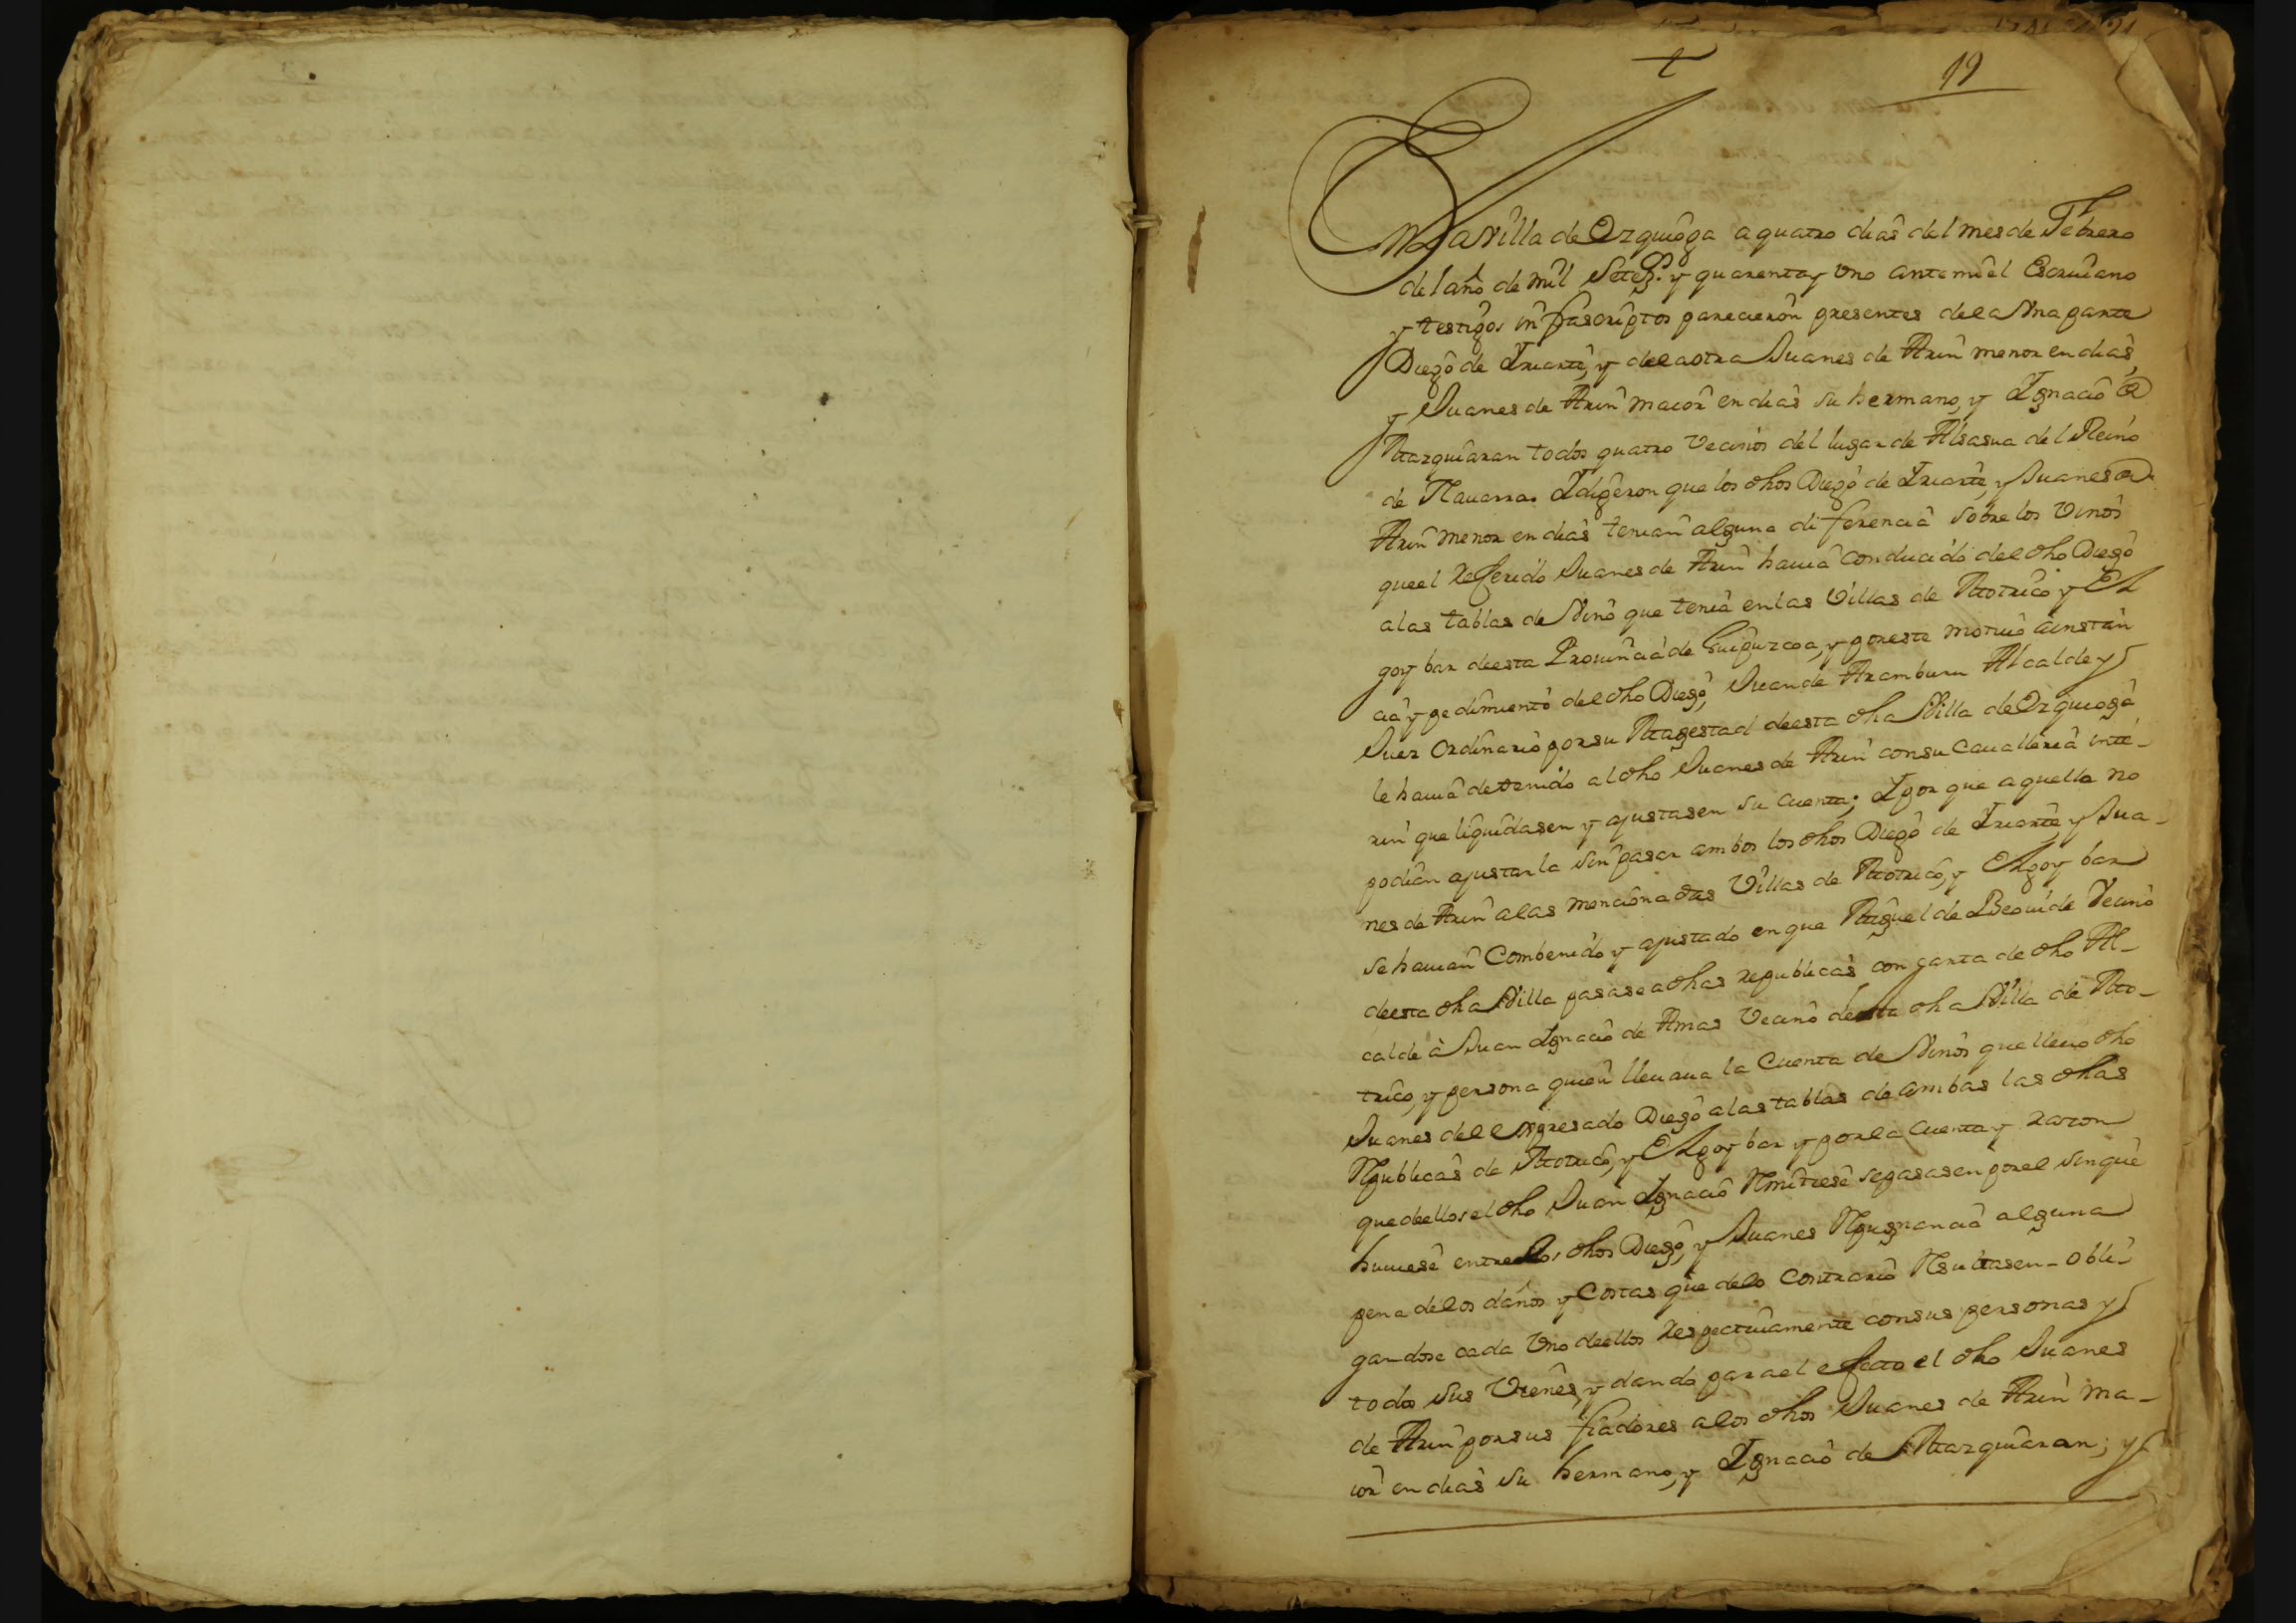 19
En la Villa de Ezquioga a quatro dias del mes de Febrero
del año de mil Setez.s y quarenta y uno ante mi el Escriuano
y testigos infrascriptos parecieron presentes de la una parte
Diego de Iriarte, y de la otra Juanes de Arin menor en dias,
y Juanes de Arin maior en dias su hermano, y Ignacio de
Mazquiaran todos quatro vecinos del lugar de Alsasua del Reino
de Nauarra. I digeron que los dhos Diego de Iriarte, y Juanes de
Arin menor en dias tenian alguna diferencia sobre los vinos
que el referido Juanes de Arin hauia conducido del dho Diego
a las tablas de Vino que tenia en las Villas de Motrico y El
goybar de esta Prouincia de Guipuzcoa, y por este motiuo a instan
cia y pedimiento del dho Diego, Juan de Aramburu Alcalde y
Juez Ordinario por su Magestad de esta dha Villa de Ezquioga
le hauia detenido al dho Juanes de Arin con su caualleria inte-
rin que liquidasen y ajustasen su cuenta; I por que aquella no
podian ajustarla sin pasar ambos los dhos Diego de Iriarte, y Jua-
nes de Arin a las mencionadas Villas de Motrico, y Elgoybar
se hauian combenido y ajustado en que Miguel de Beouide vecino
de esta dha Villa pasase a dhas republicas con carta de dho Al-
calde à Juan Ignacio de Amas vecino de esta dha Villa de Mo-
trico, y persona quien lleuaua la cuenta de Vinos que lleuo dho
Juanes del expresado Diego a las tablas de ambas las dhas
Republicas de Motrico, y Elgoybar y por la cuenta y razon
que de ellos el dho Juan Ignacio Remitiese se pasasen por el sin que
huuiese entre los dhos Diego, y Juanes Repugnancia alguna
pena de los daños y costas que de lo contrario Resultasen - obli-
gandose cada uno de ellos respectiuamente con sus personas y
todos sus vienes, y dando para el efecto el dho Juanes
de Arin por sus fiadores a los dhos Juanes de Arin ma-
ior en dias su hermano, y Ignacio de Mazquiaran; y